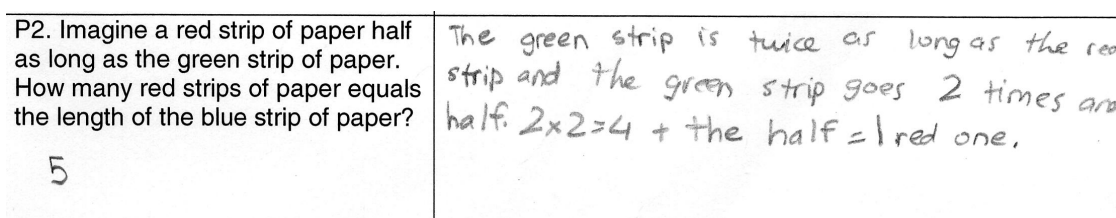 P2. Imagine a red strip of paper half
as long as the green strip of paper.
How many red strips of paper equals
the length of the blue strip of paper?
5
The green strip is twice as long as the
strip and the green strip goes 2 times
half. 2x2=4 + the half = 1 red one.